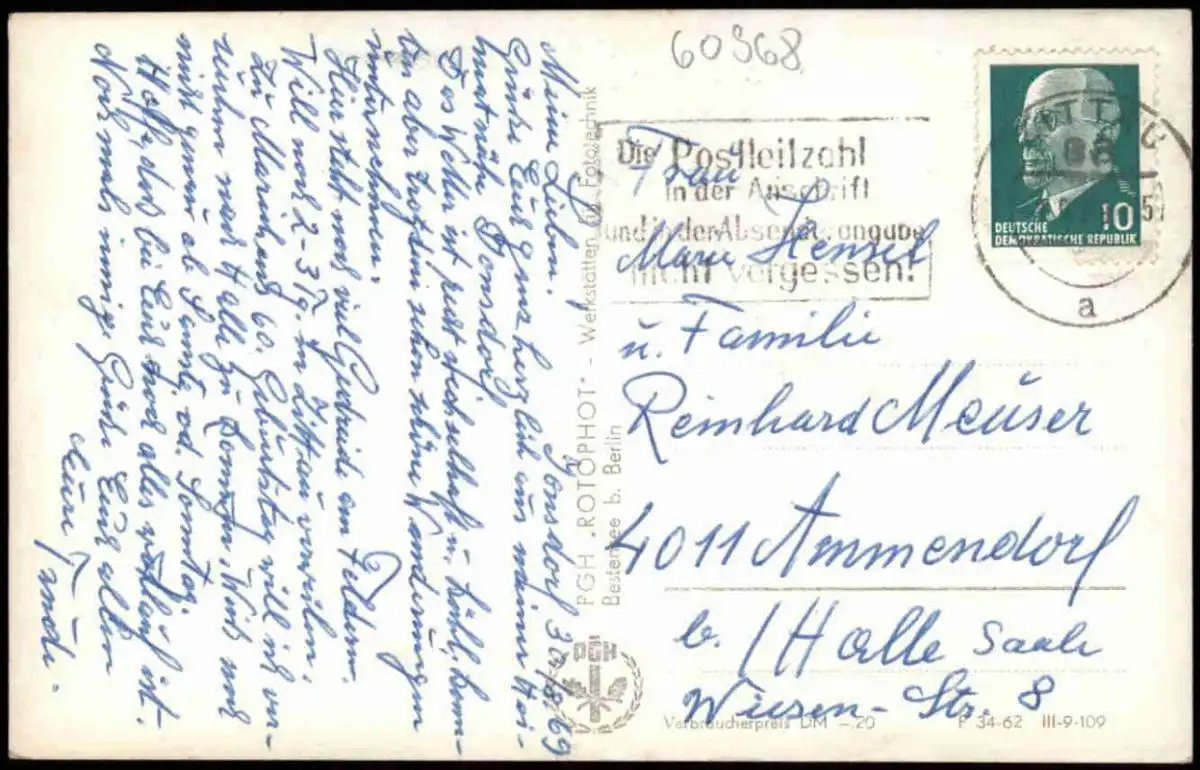 60968
Jonsdorf 30/8. 69
Meine Lieben.
Grüße Euch ganz herzlich aus meiner Hei-
matnähe Jonsdorf.
Das Wetter ist recht wechselhaft u. kühl, konn-
ten aber trotzdem schon schöne Wanderungen
unternehmen.
Hier steht noch viel Getreide an Feldern.
Will noch 2-3 Tg. in Zittau verweilen,
zu Mariechens 60. Geburtstag will ich
nach Halle zu kommen, Weiß noch
nicht genau ob Sonnab. od. Sonntag.
Hoffe, das bei Euch noch alles wohlauf ist.
Nochmals innige Grüße Euch allen
Eure Trude.
PGH „ROTOPHOT“ - Werkstätten für Fototechnik
Bestensee b. Berlin
Die Postleitzahl
in der Anschrift
und in der Absenderangabe
nicht vergessen!
ZITTAU
a
10
DEUTSCHE
DEMOKRATISCHE REPUBLIK
Frau
Marie Hensel
u. Familie
Reinhard Meuser
4011 Ammendorf
b. /Halle Saale
Wiesen-Str. 8
Verbraucherpreis DM -.20
P 34-62 III-9-109